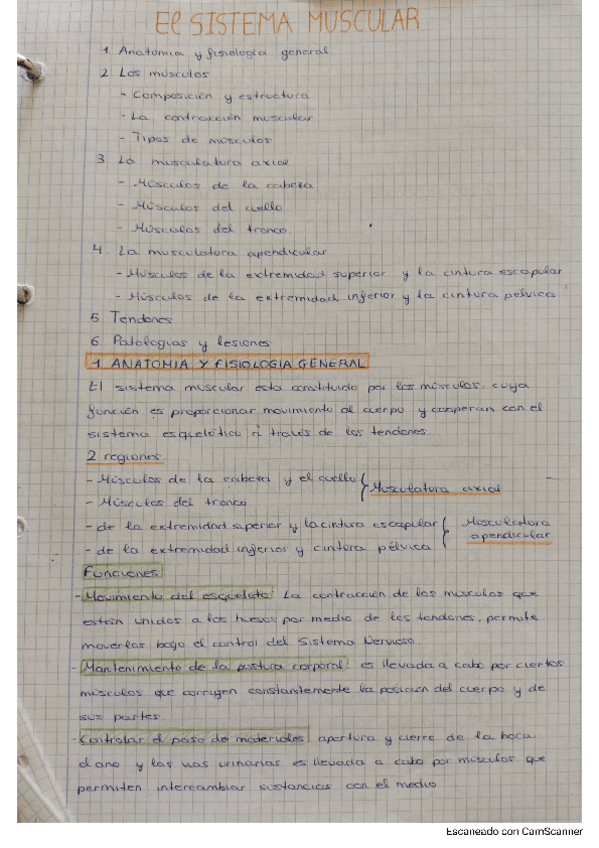 El SISTEMA MUSCULAR
1 Anatomia y fisiología general
2. Los musculos
- Composición y estructura
- La contracción muscular
- Tipos de músculos
3 La musculatura axial
- Músculos de la cabeza
- Músculos del cuello
- Músculos del tronco.
4. La musculatura apendicular
- Músculos de la extremidad superior y la cintura escapular
- Músculos de la extremidad inferior y la cintura pélvica
5 Tendones
6 Patologías y lesiones
1 ANATOMIA Y FISIOLOGIA GENERAL
El sistema muscular esta constituido por los músculos, cuya
función es proporcionar movimiento al cuerpo y cooperan con el
sistema esquelético a través de los tendones.
2 regiones
- Músculos de la cabeza y el cuello
- Músculos del tronco
Musculatura axial
- de la extremidad superior y la cintura escapular
- de la extremidad inferior y cintura pélvica
Musculatura
apendicular
Funciones
- Movimiento del esqueleto La contracción de los músculos que
están unidos a los huesos por medio de los tendones, permite
moverlos bajo el control del Sistema Nervioso.
- Mantenimiento de la postura corporal es llevada a cabo por ciertos
músculos que corrigen constantemente la posición del cuerpo y de
sus partes.
- Controlar el paso de materiales apertura y cierre de la boca
el ano y las vias urinarias es llevada a cabo por músculos que
permiten intercambiar sustancias con el medio
Escaneado con CamScanner